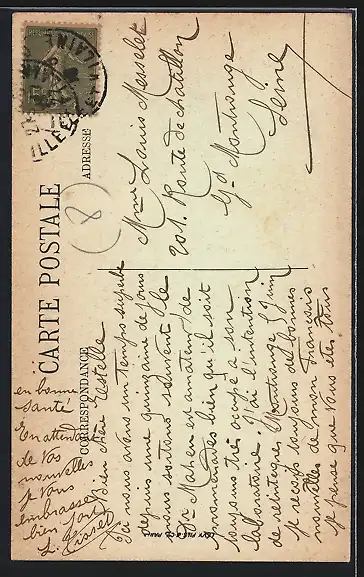 CARTE POSTALE
CORRESPONDANCE
ADRESSE
(8)
Mme Louis Messelet
201. Route de chatillon
Gd Montrouge
Seine
Bien chère Estelle
Ici nous avons un temps superbe
depuis une quinzaine de jours
nous sortons souvent le
Dr Mahen est amateur de
promenades bien qu'il soit
toujours très occupé a son
laboratoire. J'ai l'intention
de reintegrer Montrouge 27 Juin
je reçois toujours de bonnes
nouvelles de mon François
je pense que vous etes tous
en bonne
santé
En attendant
de vos
nouvelles
je vous
embrasse
bien fort
L.